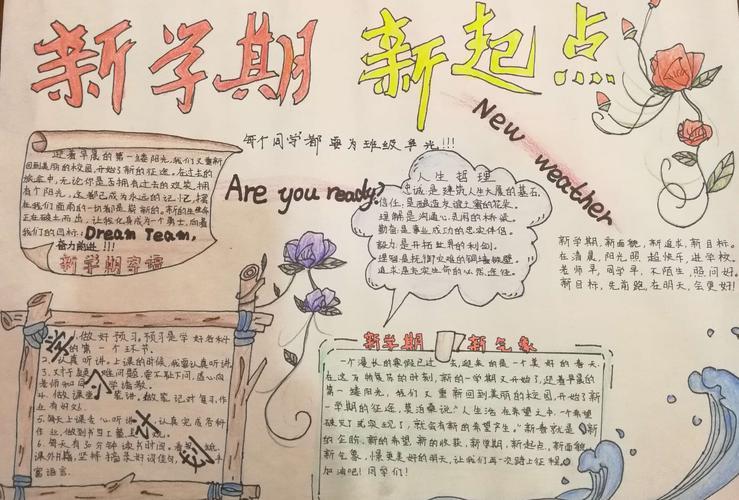 新学期 新起点
New weather
每个同学都要为班级争光!!!
Are you ready?
迎着早晨的第一缕阳光,我们又重新
回到美丽的校园,开始了新的征途,在过去的
旅途中,无论你是否拥有过去的欢笑,拥
有个阳光,这都已成为永远的记忆,摆
在我们面前的一切都是崭新的。
Dream Team,
奋力前进!!!
新学期寄语
人生哲理
忠诚,是建筑人生大厦的基石,
信任,是酿造友谊之蜜的花朵,
理解是沟通心灵间的桥梁
勤奋是事业成功的忠实伴侣,
毅力是开拓世界的利剑,
新学期,新面貌,新追求,新目标。
在清晨,阳光照,超快乐,进学校。
老师早,同学早,不陌生,照问好。
新目标,先前跑,在明天,会更好!
学习计划
1.做好预习,预习是学好各科
的第一个环节。
2.认真听讲。上课的时候,我要认真听讲。
老师和同学请教。
5.每天上课专心听讲,认真完成各种
6.每天有30分钟读书时间。
富语言。
新学期 新气象
一个漫长的寒假已过去,迎来的是一个美好的春天,
在这万物复苏的时刻,新的一学期又开始了,迎着早晨的
第一缕阳光,我们又重新回到美丽的校园,开始了新
一学期的征途,
破灭了或实现了,就会有新的希望产生。"新春就是新
的企盼、新的希望、新的收获。新学期,新起点,新面貌,
新气象,憬更美好的明天,让我们再一次踏上征程,
加油吧!同学们!